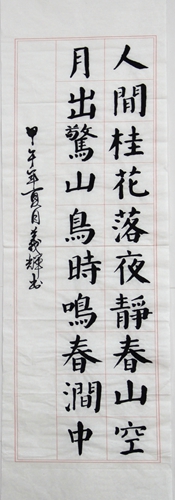 人間桂花落夜靜春山空
月出驚山鳥時鳴春澗中
甲午年夏月義輝书